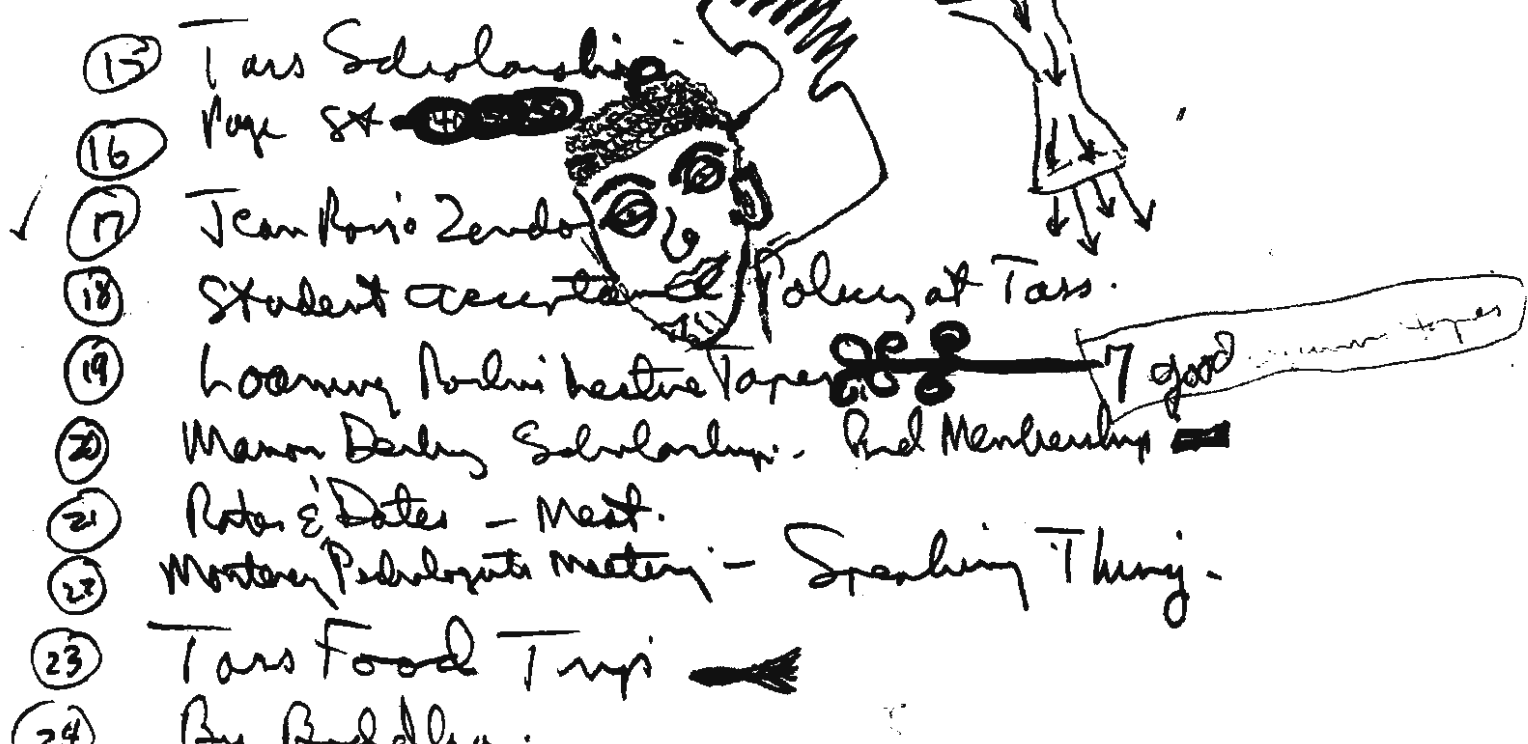 15 Tass Scholarship.
16 Page St
17 Jean Ronjo Zendo
18 Student acceptance Policy at Tass.
19 Loaning Lecture Tapes 7 good tapes
20 Marion Derby Scholarship. Bud Membership
21 Rates & Dates - Mest.
22 Monterey Meeting - Speaking Thing.
23 Tass Food Trip
24 By Buddha.